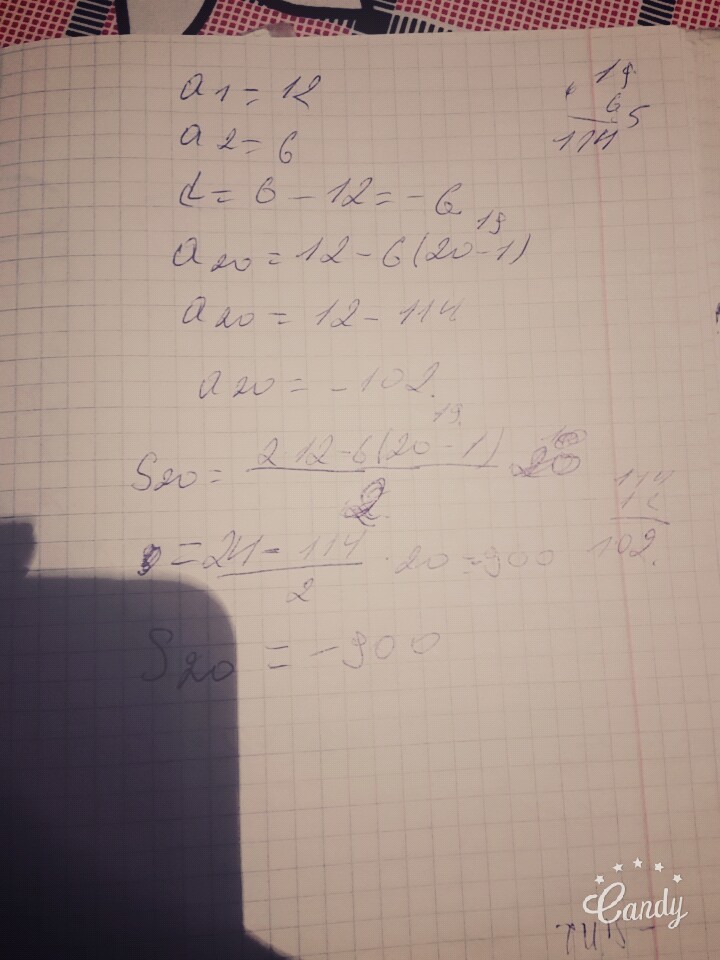 a1 = 12
a2 = 6
d = 6 - 12 = -6
19
a20 = 12 - 6(20-1)
a20 = 12 - 114
a20 = -102.
19
S20 = 2·12-6(20-1)/2 · 20
= 24-114/2 · 20 = 900
S20 = -900
19
6
114
5
114
12
102.
Candy